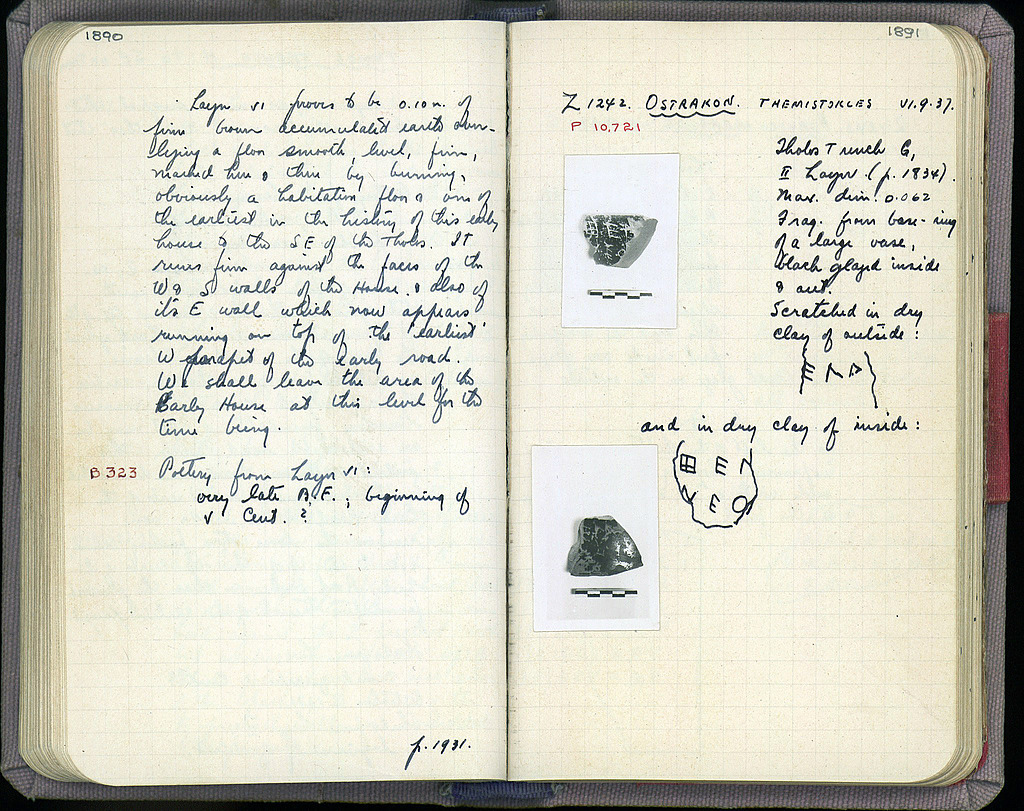 1890
Layer VI proves to be 0.10 m. of
firm brown accumulated earth over-
lying a floor smooth, level, firm,
marked here & there by burning,
obviously a habitation floor & one of
the earliest in the history of this early
house to the SE of the Tholos. It
runs firm against the faces of the
W & S walls of the House & also of
its E wall which now appears
running on top of the 'earliest'
W parapet of the early road.
We shall leave the area of the
Early House at this level for the
time being.
B 323 Pottery from Layer VI:
very late B.F.; beginning of
V Cent. ?
p. 1931.
1891
Z 1242. OSTRAKON. THEMISTOKLES VI.9.37.
P 10,721
Tholos Trench G,
II Layer (p. 1834).
Max. dim. 0.062
Frag. from base-ring
of a large vase,
black glazed inside
& out.
Scratched in dry
clay of outside:
and in dry clay of inside: